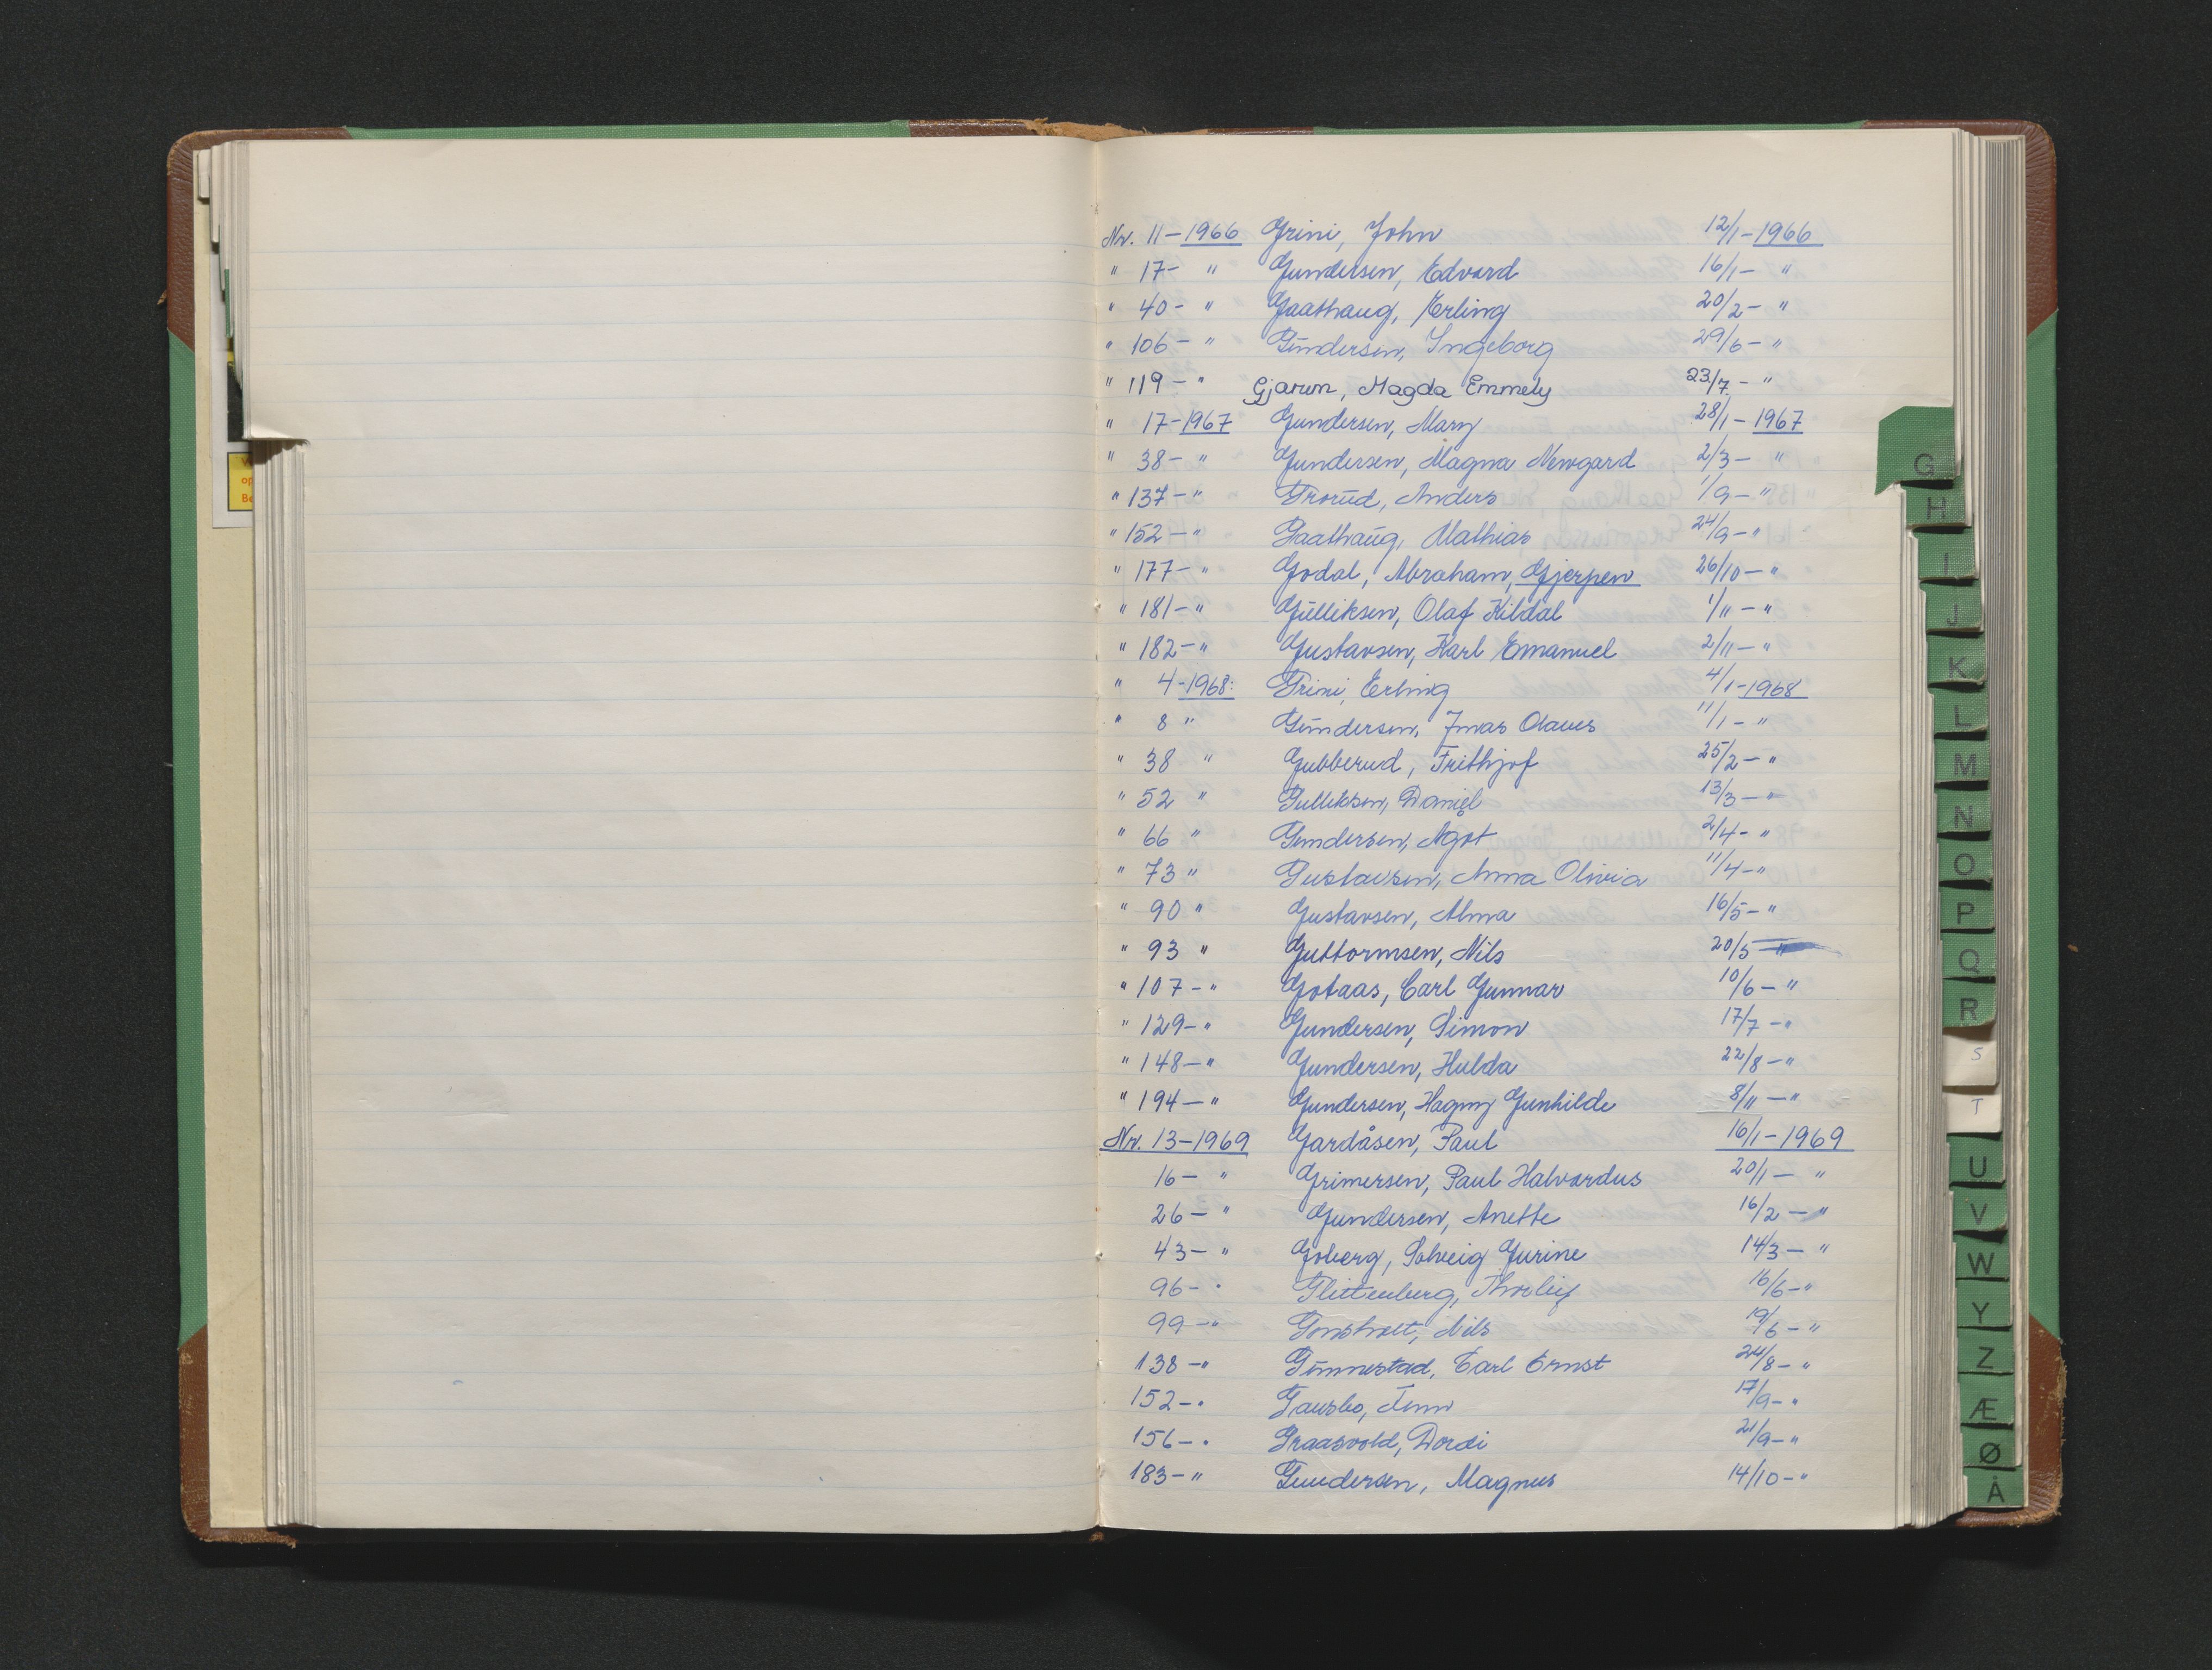 Nr. 11-1966 Grini, John 12/1-1966
" 17- " Gundersen, Edvard 16/1- "
" 40- " Gaathaug, Erling 20/2- "
" 106- " Gundersen, Ingeborg 29/6- "
" 119- " Gjarum, Magda Emmely 23/7- "
" 17-1967 Gundersen, Mary 28/1-1967
" 38- " Gundersen, Magna Newgard 2/3- "
" 137- " Grorud, Anders 1/9- "
" 152- " Gaathaug, Mathias 24/9- "
" 177- " Godal, Abraham, Gjerpen 26/10- "
" 181- " Gulliksen, Olaf Kildal 1/11- "
" 182- " Gustavsen, Karl Emanuel 2/11- "
" 4-1968: Grini, Erling 4/1-1968
" 8 " Gundersen, Olaves 11/1- "
" 38 " Gubberud, Frithjof 25/2- "
" 52 " Gulliksen, Daniel 13/3- "
" 66 " Gundersen, Agot 2/4- "
" 73 " Gustavsen, Anna Olivia 11/4- "
" 90 " Gustavsen, Alma 16/5- "
" 93 " Guttormsen, Nils 20/5- "
" 107- " Gotaas, Carl Gunnar 10/6- "
" 129- " Gundersen, Simon 17/7- "
" 148- " Gundersen, Hulda 22/8- "
" 194- " Gundersen, Hagny Gunhilde 8/11- "
Nr. 13-1969 Gardåsen, Paul 16/1-1969
16- " Grimersen, Paul Halvardus 20/1- "
26- " Gundersen, Anette 16/2- "
43- " Goberg, Solveig Gurine 14/3- "
96- " Glittenberg, Thorleif 16/6- "
99- " Gonsholt, Nils 19/6- "
138- " Gunnestad, Carl Ernst 24/8- "
152- " Gausbo, 17/9- "
156- " Graasvold, Dordi 21/9- "
183- " Gundersen, Magnus 14/10- "
G
H
I
J
K
L
M
N
O
P
Q
R
S
T
U
V
W
Y
Z
Æ
Ø
Å